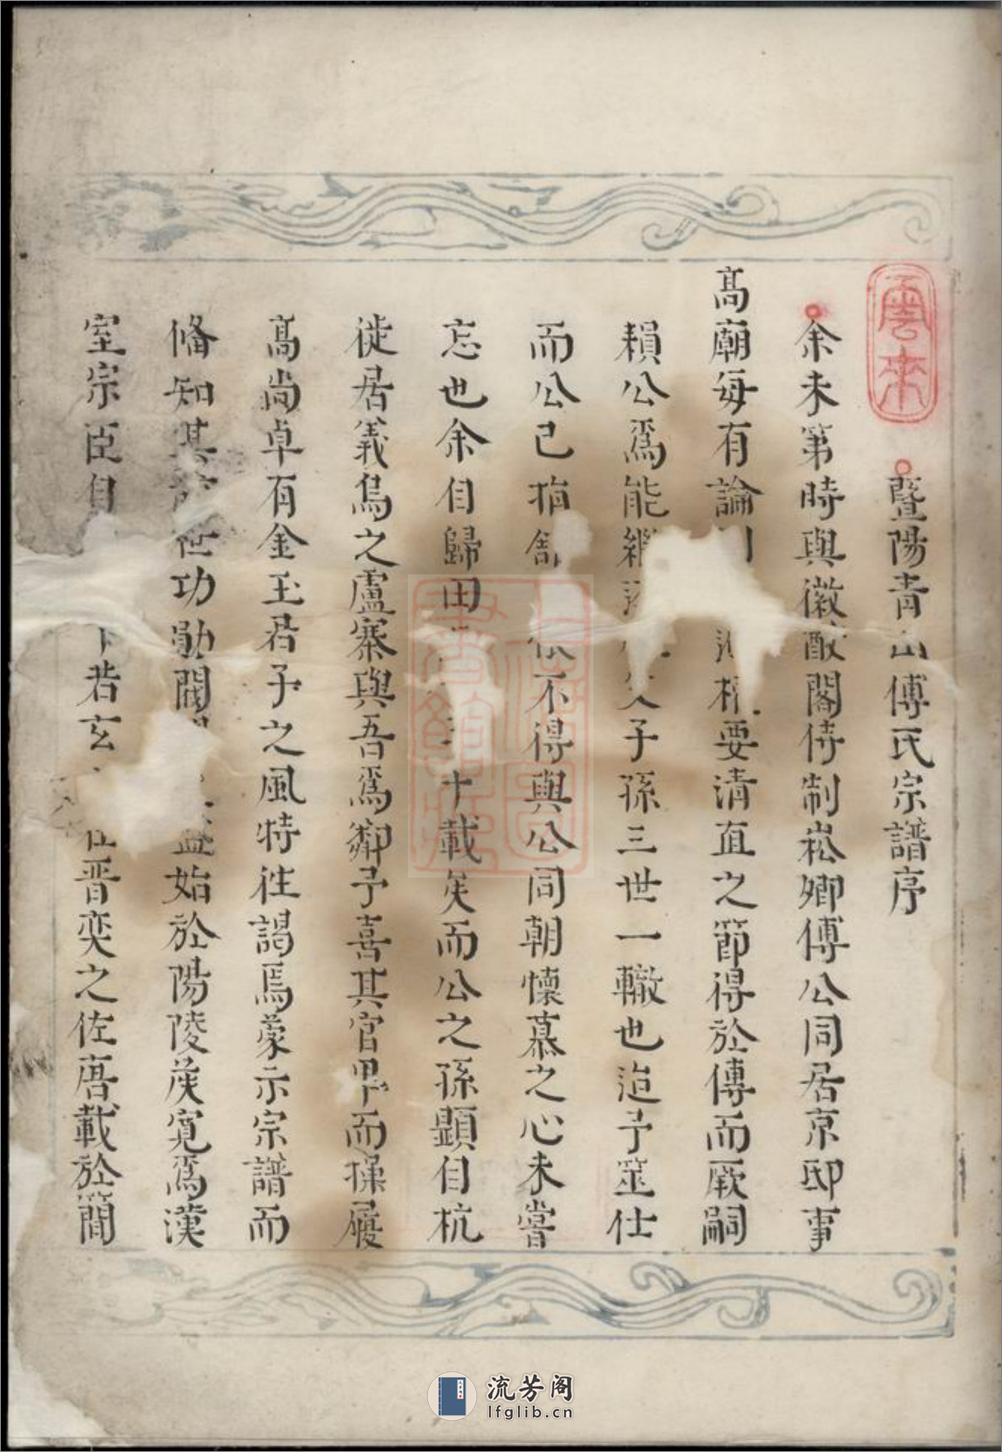 雲來
暨陽青山傅氏宗譜序
余未第時與徽猷閣侍制崧卿傅公同居京邸事
高廟每有論 要清直之節得於傳而厥嗣
賴公爲能繼 父子孫三世一轍也迨予筮仕
而公已捐舘 恨不得與公同朝懷慕之心未嘗
忘也余自歸田 十載矣而公之孫顕自杭
徙居義烏之盧寨與吾爲鄰予喜其官卑而操履
高尚卓有金玉君子之風特往謁焉蒙示宗譜而
脩知其 世功勛閥 始於陽陵侯寬爲漢
室宗臣自 下若玄 仕晋奕之佐唐載於簡
流芳阁
lfglib.cn